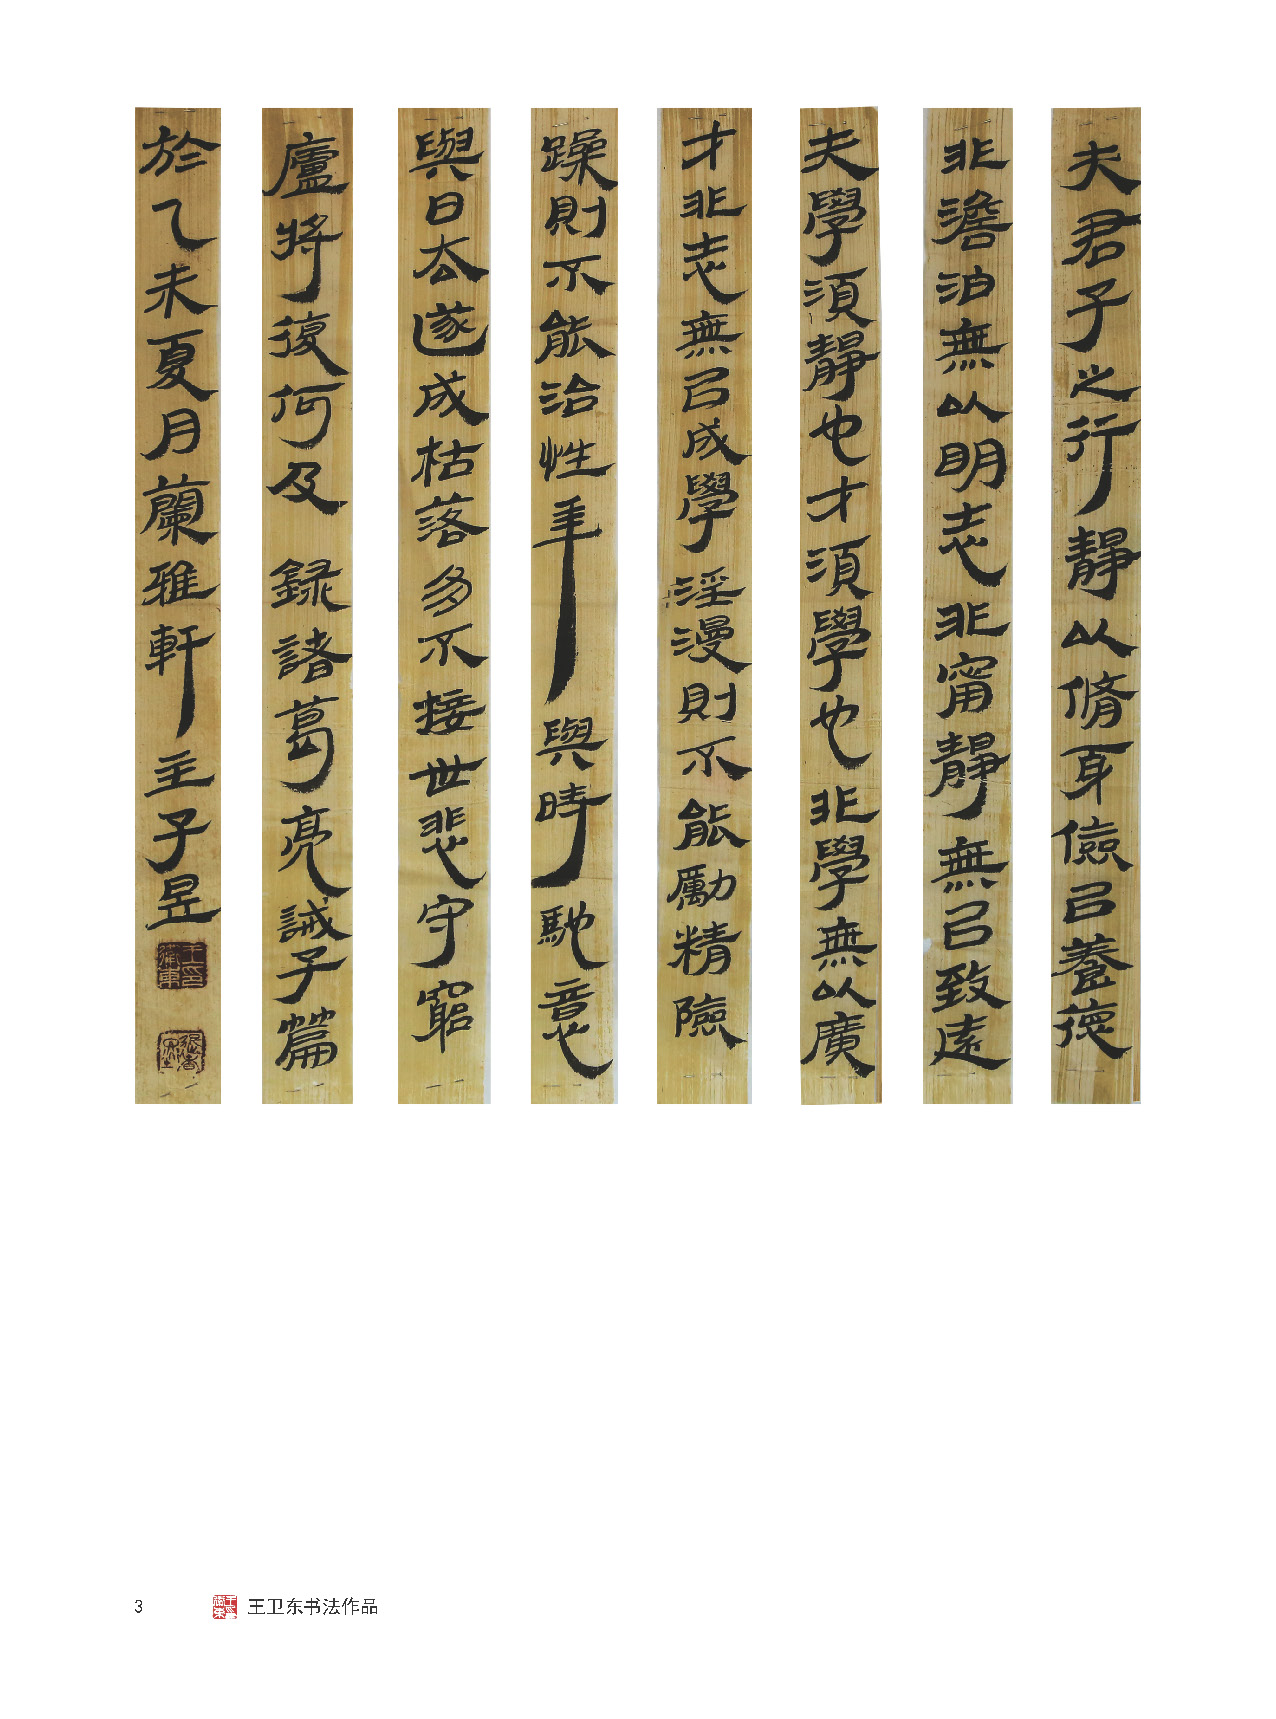 夫君子之行靜以脩身儉㠯養德
非澹泊無以明志非甯靜無㠯致遠
夫學須靜也才須學也非學無以廣
才非志無㠯成學淫漫則不能勵精險
躁則不能治性年與時馳意
與日去遂成枯落多不接世悲守窮
廬將復何及 録諸葛亮誡子篇
於乙未夏月蘭雅軒主子昱
王印衛東
3
王卫东书法作品